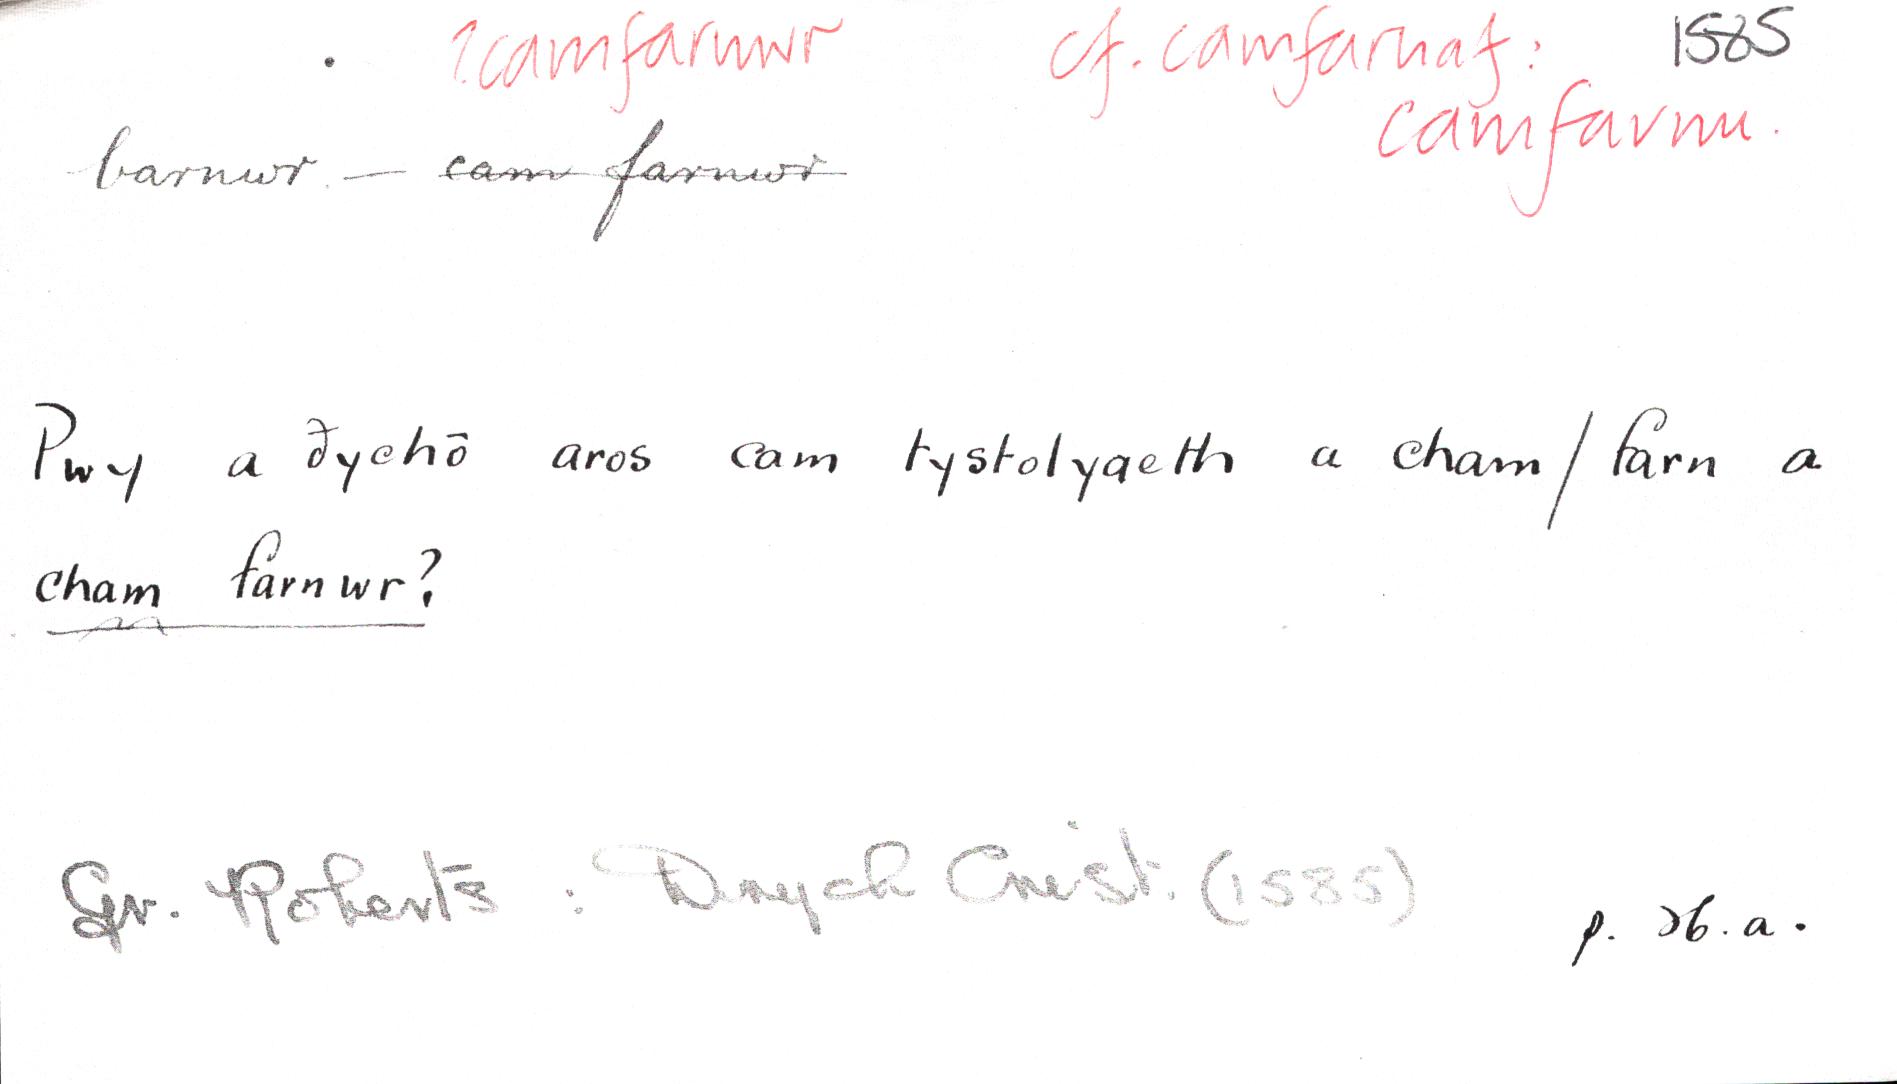 ?camfarnwr cf. camfarnaf: 1585
camfarnu.
barnwr. — cam farnwr
Pwy a ðychō aros cam tystolyaeth a cham/farn a
cham farnwr?
Gr. Roberts : Drych Crist. (1585) p. 26.a.